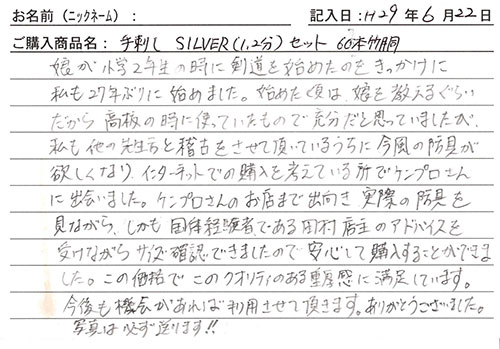 お名前(ニックネーム): 記入日:H29年6月22日
ご購入商品名: 手刺し SILVER(1.2分)セット 60本竹胴
娘が小学2年生の時に剣道を始めたのをきっかけに
私も27年ぶりに始めました。始めた頃は、娘を教えるぐらい
だから高校の時に使っていたもので充分だと思っていましたが、
私も他の先生方と稽古をさせて頂いているうちに今風の防具が
欲しくなり、インターネットでの購入を考えている所でケンプロさん
に出会いました。ケンプロさんのお店まで出向き、実際の防具を
見ながら、しかも国体経験者である田村店主のアドバイスを
受けながらサイズ確認できましたので安心して購入することができま
した。この価格でこのクオリティのある重厚感に満足しています。
今後も機会があれば利用させて頂きます。ありがとうございました。
写真は必ず送ります!!